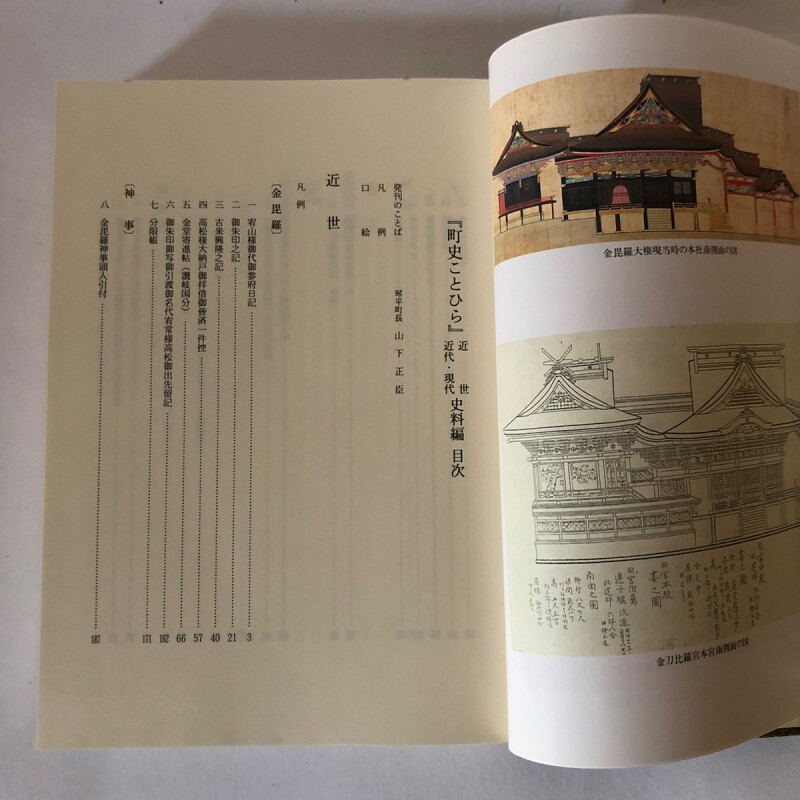 『町史ことひら』近世 近代・現代 史料編 目次
発刊のことば 琴平町長 山下正臣
凡例
口絵
近世
凡例
〔金毘羅〕
一 宥山様御代御参府日記 3
二 御朱印之記 21
三 古来興隆之記 40
四 高松様大納戸御拝借御皆済一件控 57
五 金堂寄進帖（讃岐国分） 66
六 御朱印御写御引渡御名代宥常様高松御出先留記 162
七 分限帳 171
〔神事〕
八 金毘羅神事頭人引付 187
金毘羅大権現当時の本社南側面の図
金刀比羅宮本宮南側面の図